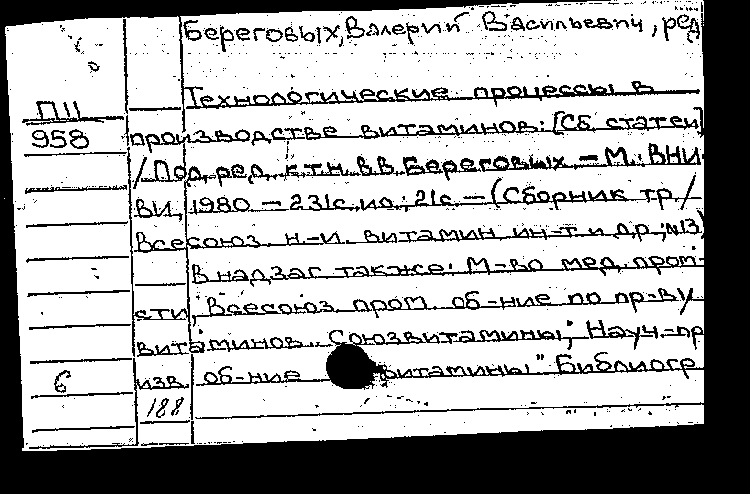 Береговых, Валерий Васильевич, ред
Технологические процессы в
П11
958 производстве витаминов: [Сб. статей]
/ Под ред. к.т.н. В.В. Береговых. – М.: ВНИ-
ВИ, 1980 – 231с. ил.; 21с. – (Сборник тр. /
Всесоюз. н.-и. витамин. ин-т и др.; №13)
В надзаг также: М-во мед. пром-
сти, Всесоюз. пром. об-ние по пр-ву
витаминов "Союзвитамины", Науч.-пр
6 изв. об-ние "Витамины" Библиогр
188